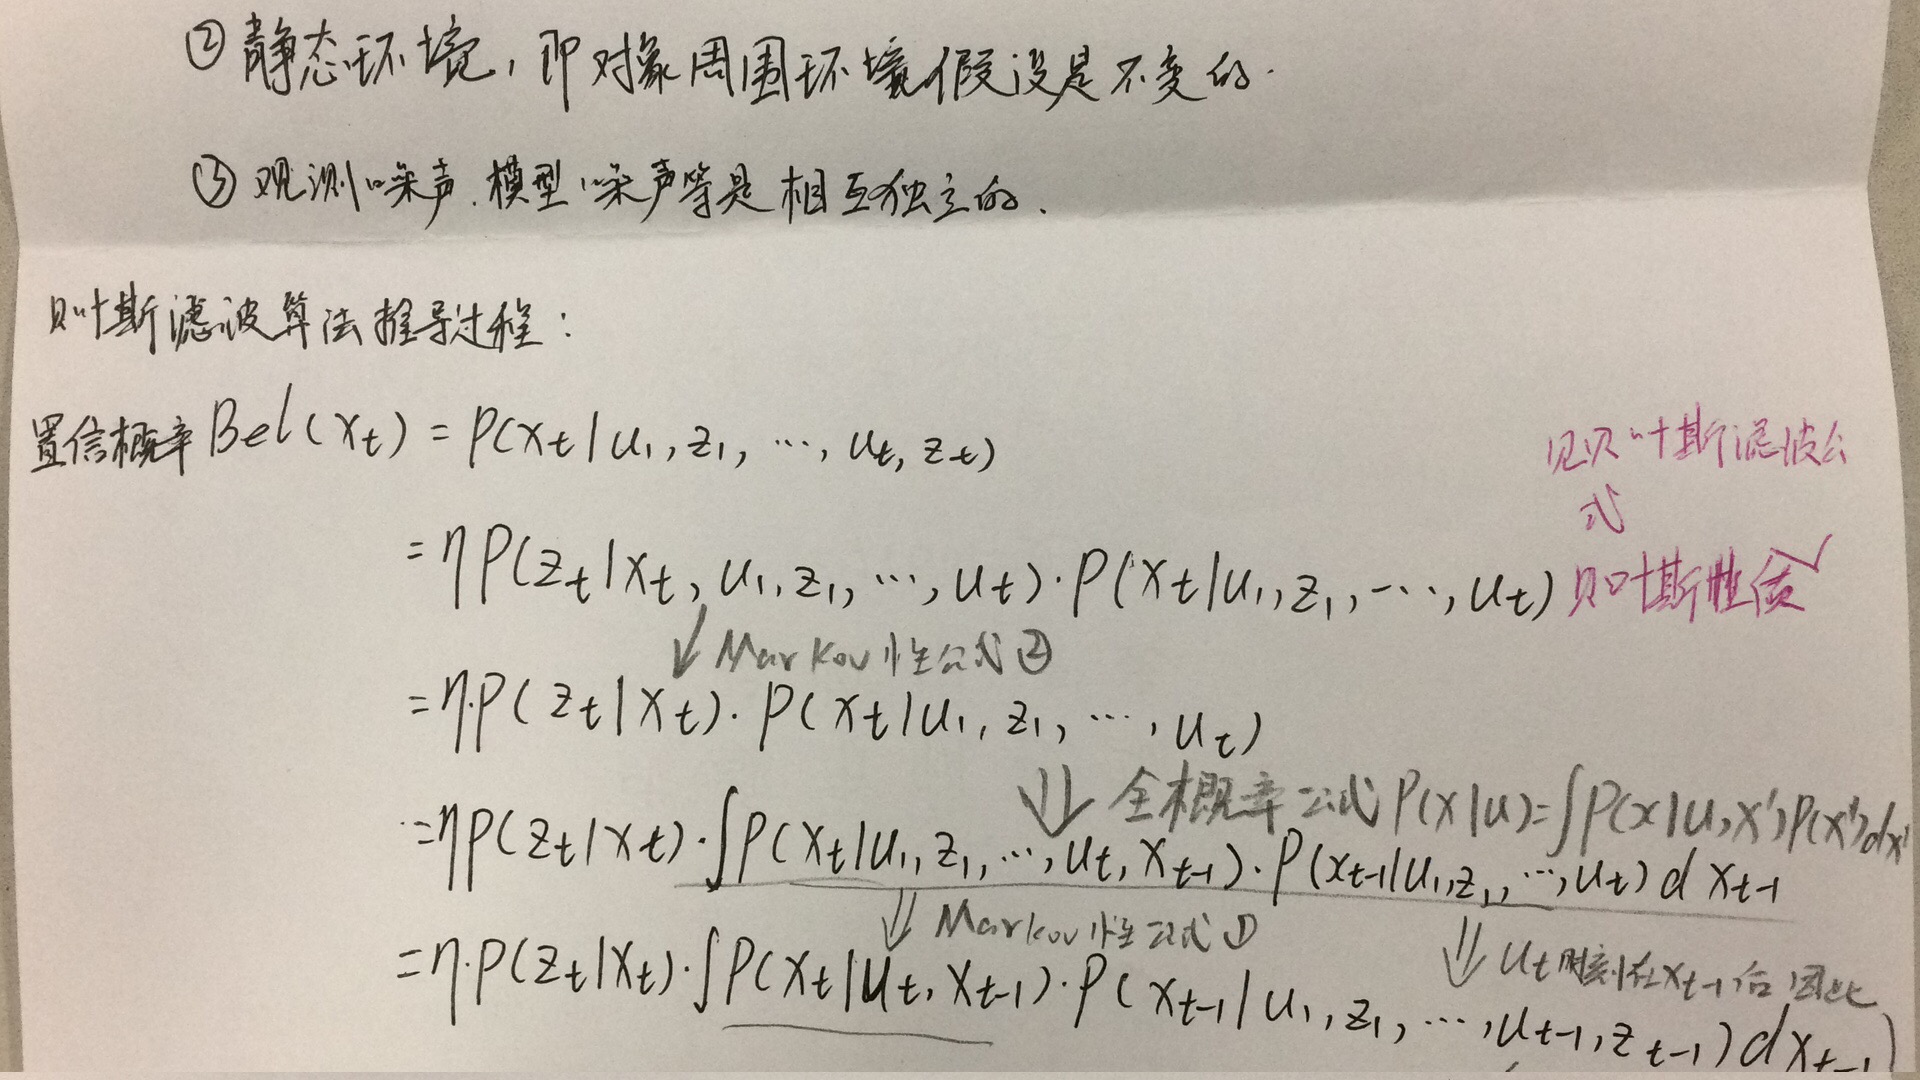 ② 静态环境，即对象周围环境假设是不变的.
③ 观测噪声.模型噪声等是相互独立的.
贝叶斯滤波算法推导过程：
置信概率 Bel(xt) = P(xt|u1,z1,…,ut,zt)
见贝叶斯滤波公
式
=ηP(zt|xt,u1,z1,…,ut)·P(xt|u1,z1,…,ut) 贝叶斯性质
Markov性公式②
=η·P(zt|xt)·P(xt|u1,z1,…,ut)
全概率公式 P(x|u)=∫P(x|u,x')P(x')dx'
=ηP(zt|xt)·∫P(xt|u1,z1,…,ut,xt-1)·P(xt-1|u1,z1,…,ut)dxt-1
Markov性公式① ut时刻在xt-1后因此
=η·P(zt|xt)·∫P(xt|ut,xt-1)·P(xt-1|u1,z1,…,ut-1,zt-1)dxt-1